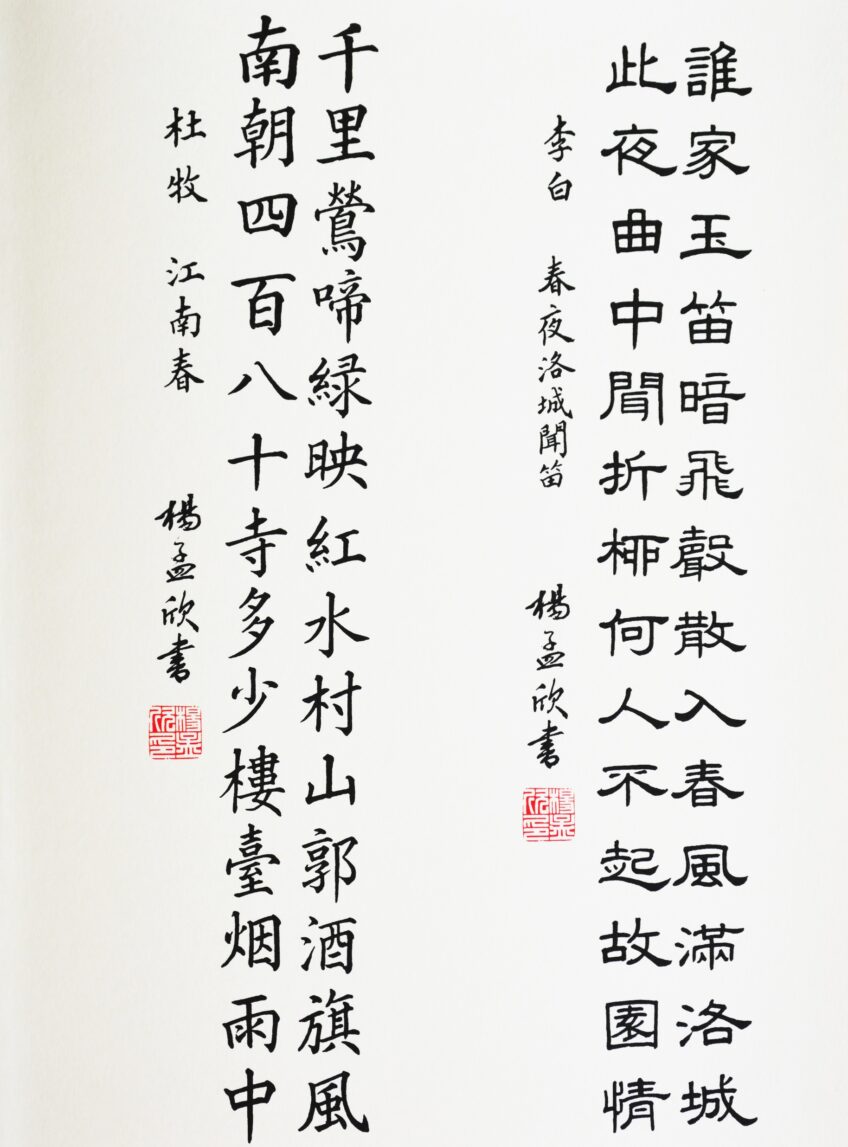 誰家玉笛暗飛聲散入春風滿洛城
此夜曲中聞折柳何人不起故園情
李白 春夜洛城聞笛
楊孟欣書
楊孟欣印
千里鶯啼緑映紅水村山郭酒旗風
南朝四百八十寺多少樓臺烟雨中
杜牧 江南春
楊孟欣書
楊孟欣印